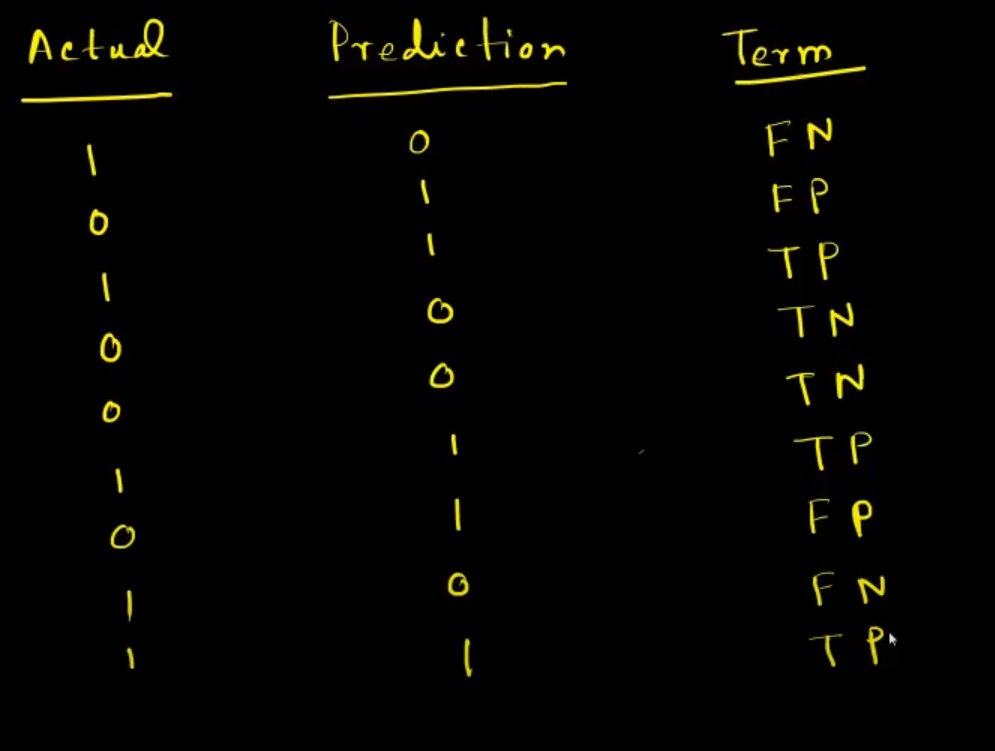 Actual Prediction Term
1 0 FN
0 1 FP
1 1 TP
0 0 TN
0 0 TN
1 1 TP
0 1 FP
1 0 FN
1 1 TP